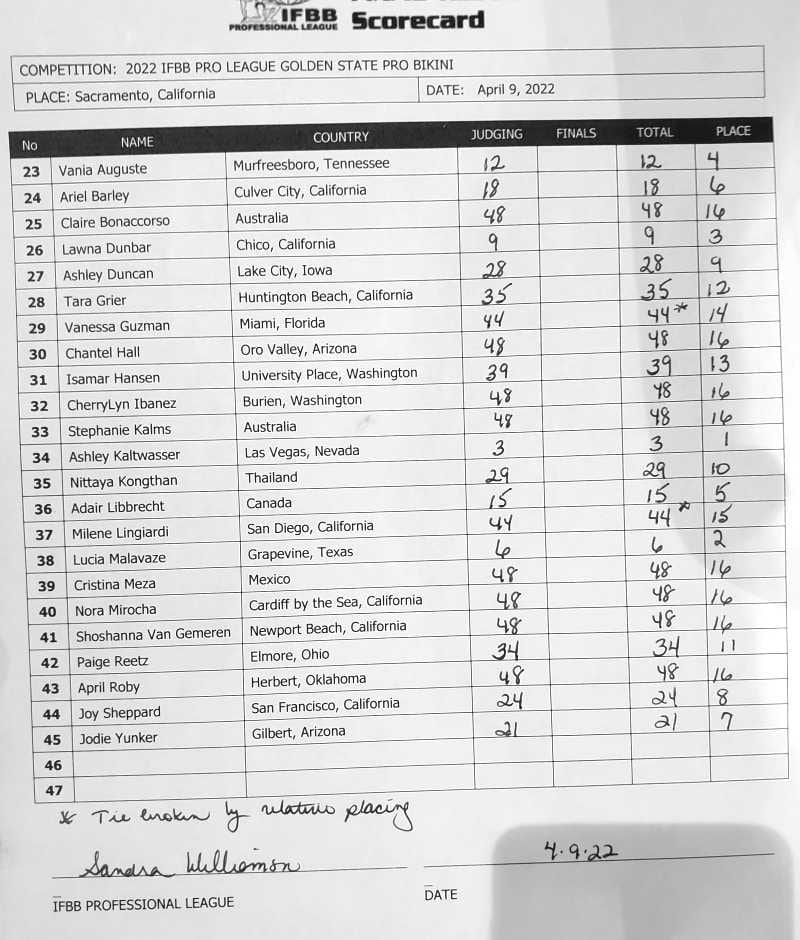 IFBB
PROFESSIONAL LEAGUE
Scorecard
COMPETITION: 2022 IFBB PRO LEAGUE GOLDEN STATE PRO BIKINI
PLACE: Sacramento, California DATE: April 9, 2022
No NAME COUNTRY JUDGING FINALS TOTAL PLACE
23 Vania Auguste Murfreesboro, Tennessee 12 12 4
24 Ariel Barley Culver City, California 18 18 6
25 Claire Bonaccorso Australia 48 48 16
26 Lawna Dunbar Chico, California 9 9 3
27 Ashley Duncan Lake City, Iowa 28 28 9
28 Tara Grier Huntington Beach, California 35 35 12
29 Vanessa Guzman Miami, Florida 44 44* 14
30 Chantel Hall Oro Valley, Arizona 48 48 16
31 Isamar Hansen University Place, Washington 39 39 13
32 CherryLyn Ibanez Burien, Washington 48 48 16
33 Stephanie Kalms Australia 48 48 16
34 Ashley Kaltwasser Las Vegas, Nevada 3 3 1
35 Nittaya Kongthan Thailand 29 29 10
36 Adair Libbrecht Canada 15 15 5
37 Milene Lingiardi San Diego, California 44 44* 15
38 Lucia Malavaze Grapevine, Texas 6 6 2
39 Cristina Meza Mexico 48 48 16
40 Nora Mirocha Cardiff by the Sea, California 48 48 16
41 Shoshanna Van Gemeren Newport Beach, California 48 48 16
42 Paige Reetz Elmore, Ohio 34 34 11
43 April Roby Herbert, Oklahoma 48 48 16
44 Joy Sheppard San Francisco, California 24 24 8
45 Jodie Yunker Gilbert, Arizona 21 21 7
46
47
* Tie broken by relative placing
Sandra Williamson 4.9.22
IFBB PROFESSIONAL LEAGUE DATE